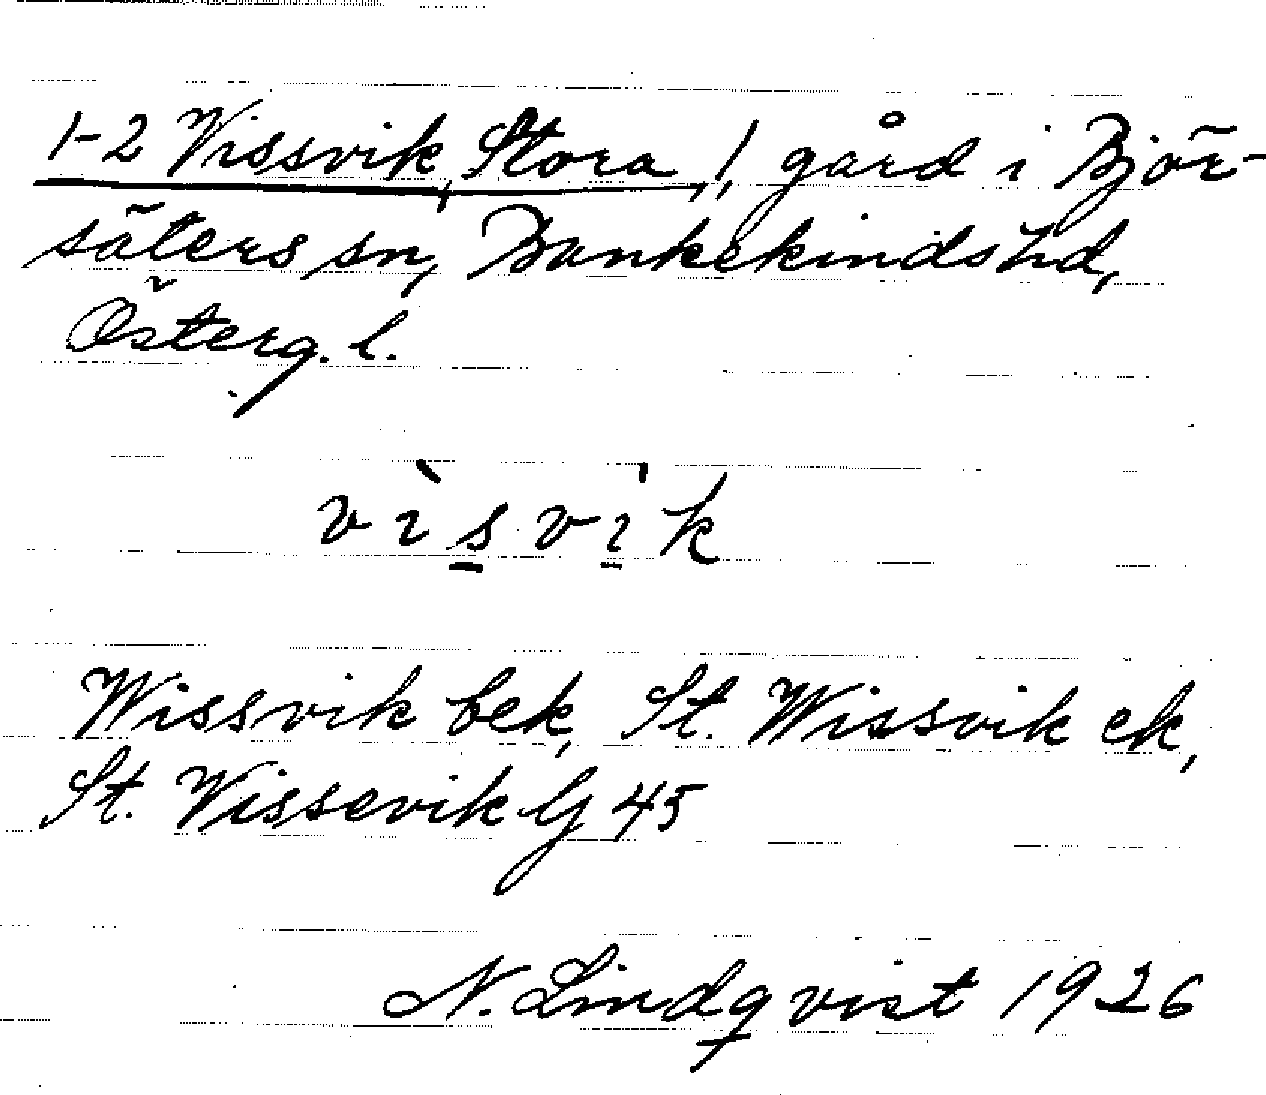 1-2 Vissvik, Stora, 1, gård i Björ-
säters sn, Bankekinds hd,
Österg. l.
vìsvi̍k
Wissvik bek, St. Wissvik ek,
St. Vissevik Gj 45
N. Lindqvist 1926